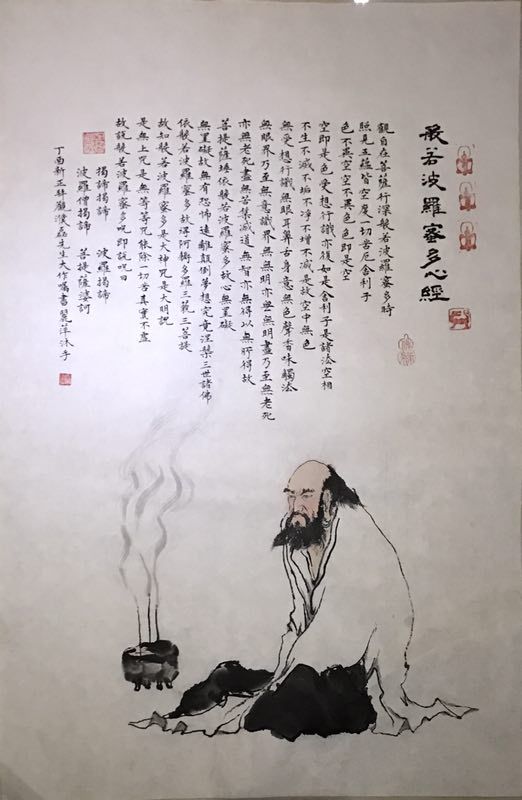 般若波羅蜜多心經
觀自在菩薩行深般若波羅蜜多時
照見五蘊皆空度一切苦厄舍利子
色不異空空不異色色即是空
空即是色受想行識亦復如是舍利子是諸法空相
不生不滅不垢不淨不增不減是故空中無色
無受想行識無眼耳鼻舌身意無色聲香味觸法
無眼界乃至無意識界無無明亦無無明盡乃至無老死
亦無老死盡無苦集滅道無智亦無得以無所得故
菩提薩埵依般若波羅蜜多故心無罣礙
無罣礙故無有恐怖遠離顛倒夢想究竟涅槃三世諸佛
依般若波羅蜜多故得阿耨多羅三藐三菩提
故知般若波羅蜜多是大神咒是大明咒
是無上咒是無等等咒能除一切苦真實不虛
故說般若波羅蜜多咒即說咒曰
揭諦揭諦 波羅揭諦
波羅僧揭諦 菩提薩婆訶
丁酉新正拜觀濮磊先生大作囑書 沐手